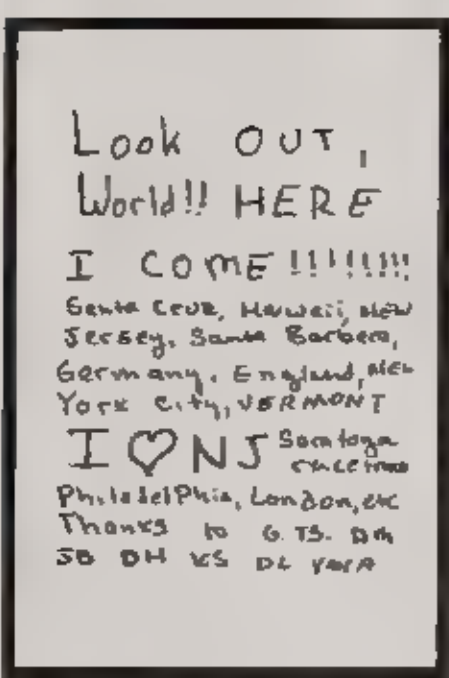 Look OUT,
World!! HERE
I COME !!!!!!!!
Santa Cruz, Hawaii, NEW
Jersey, Santa Barbara,
Germany, England, NEW
York City, VERMONT
I ♡ NJ Saratoga
PhiladelPhia, London, etc
Thanks to G. TS. DM
JB DH KS DL